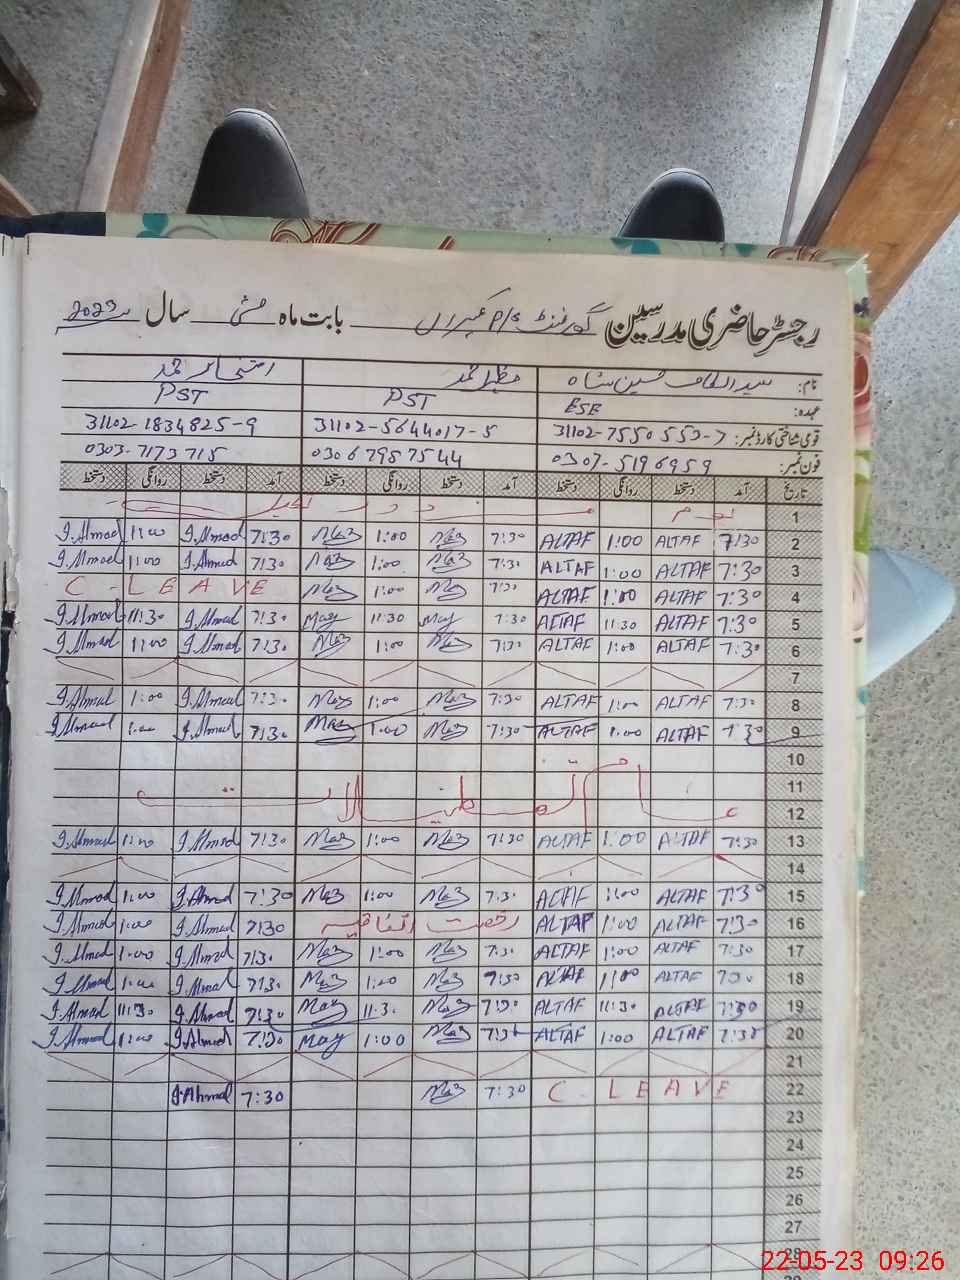 رجسٹر حاضری مدرسین گورنمنٹ P/S بابت ماہ مئی سال 2023
نام: سید الطاف حسین شاہ
عہدہ: ESE PST PST
قومی شناختی کارڈ نمبر: 31102-7550552-7 31102-5644017-5 31102-1834825-9
فون نمبر: 0307-5196959 0306 7957544 0303-7173715
تاریخ آمد دستخط روانگی دستخط آمد دستخط روانگی دستخط آمد دستخط روانگی دستخط
1
2 7:30 ALTAF 1:00 ALTAF 7:30 1:00 7:30 I.Ahmad 1:00 I.Ahmad
3 7:30 ALTAF 1:00 ALTAF 7:30 1:00 7:30 I.Ahmad 1:00 I.Ahmad
4 7:30 ALTAF 1:00 ALTAF 7:30 1:00 C-LEAVE
5 7:30 ALTAF 11:30 ALTAF 7:30 11:30 7:30 I.Ahmad 11:30 I.Ahmad
6 7:30 ALTAF 1:00 ALTAF 7:30 1:00 7:30 I.Ahmad 1:00 I.Ahmad
7
8 7:30 ALTAF 1:00 ALTAF 7:30 1:00 7:30 I.Ahmad 1:00 I.Ahmad
9 7:30 ALTAF 1:00 ALTAF 7:30 1:00 7:30 I.Ahmad 1:00 I.Ahmad
10
11 عام تعطیلات
12
13 7:30 ALTAF 1:00 ALTAF 7:30 1:00 7:30 I.Ahmad 1:00 I.Ahmad
14
15 7:30 ALTAF 1:00 ALTAF 7:30 1:00 7:30 I.Ahmad 1:00 I.Ahmad
16 7:30 ALTAF 1:00 ALTAF رخصت اتفاقیہ 7:30 I.Ahmad 1:00 I.Ahmad
17 7:30 ALTAF 1:00 ALTAF 7:30 1:00 7:30 I.Ahmad 1:00 I.Ahmad
18 7:30 ALTAF 1:00 ALTAF 7:30 1:00 7:30 I.Ahmad 1:00 I.Ahmad
19 7:30 ALTAF 11:30 ALTAF 7:30 11:30 7:30 I.Ahmad 11:30 I.Ahmad
20 7:30 ALTAF 1:00 ALTAF 7:30 1:00 7:30 I.Ahmad 1:00 I.Ahmad
21
22 C-LEAVE 7:30 7:30 I.Ahmad
23
24
25
26
27
28
22-05-23 09:26